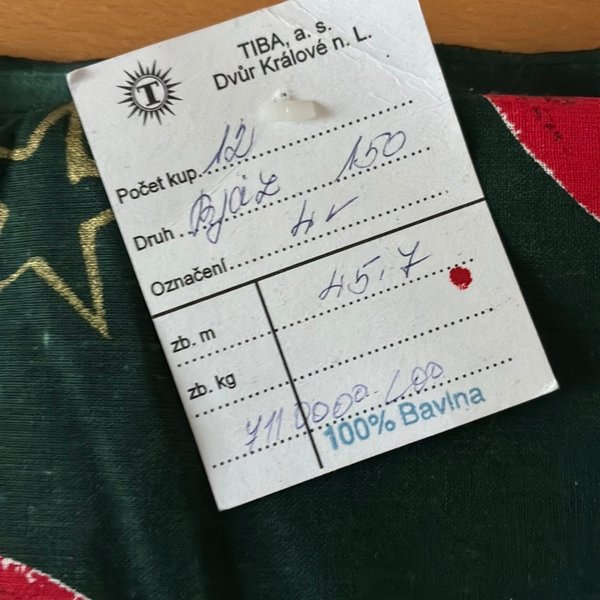 TIBA, a. s.
Dvůr Králové n. L.
T
Počet kup. 12
Druh Bjáz 150
Označení
zb. m 45.7
zb. kg
100% Bavlna